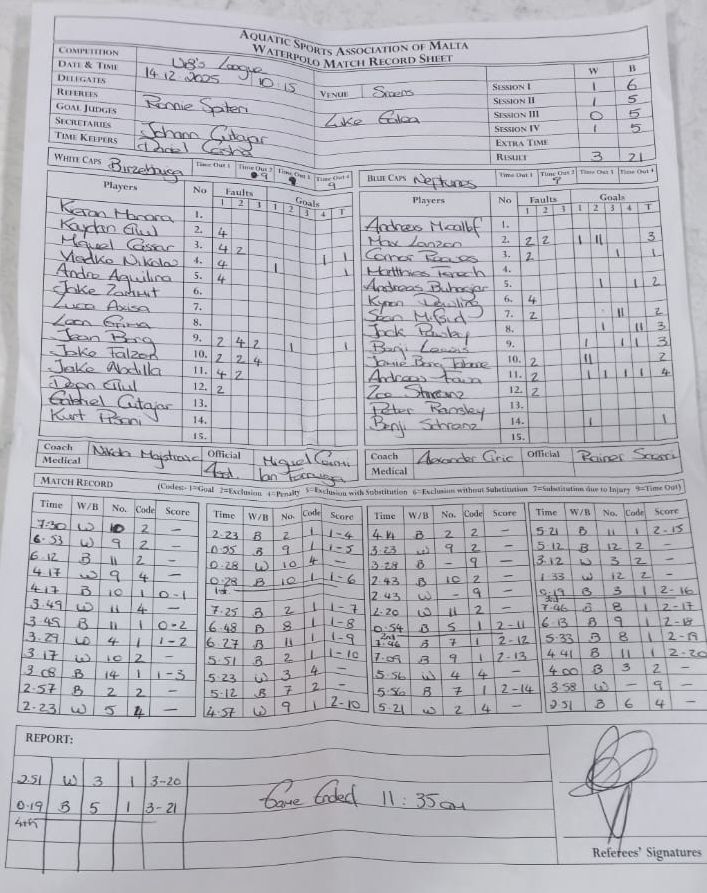 AQUATIC SPORTS ASSOCIATION OF MALTA
WATERPOLO MATCH RECORD SHEET
COMPETITION
DATE & TIME 14.12.2025 10:15
DELEGATES
REFEREES Ronnie Spiteri
GOAL JUDGES
SECRETARIES Johann Cutajar
TIME KEEPERS
VENUE
Luke Galea
W B
SESSION I 1 6
SESSION II 1 5
SESSION III 0 5
SESSION IV 1 5
EXTRA TIME
RESULT 3 21
WHITE CAPS Birzebbuga Time Out 1 Time Out 2 Time Out 3 Time Out 4
9 9 9
Players No Faults Goals
1 2 3 1 2 3 4 T
1.
2. 4
Miguel Cassar 3. 4 2
Nikola 4. 4 1 1
Andre Aquilina 5. 4 1
Jake Zammit 6.
Luca Axisa 7.
Leon Grima 8.
Jean Borg 9. 2 4 2 1 1
Jake Falzon 10. 2 2 4
Jake Abdilla 11. 4 2
Dean Giul 12. 2
Gabriel Cutajar 13.
Kurt Pisani 14.
15.
BLUE CAPS Neptunes Time Out 1 Time Out 2 Time Out 3 Time Out 4
9
Players No Faults Goals
1 2 3 1 2 3 4 T
Andreas Micallef 1.
Max Lanzon 2. 2 2 1 11 3
3. 2 1 1
Matthias 4.
Andreas Buhagiar 5. 1 1 2
6. 4
Sean Mifsud 7. 2 11 2
Jack Pawley 8. 1 11 3
Benji 9. 1 1 1 3
Jamie Borg 10. 2 11 2
Andreas 11. 2 1 1 1 1 4
Zoe 12. 2
Peter Ransley 13.
Benji Schranz 14. 1 1
15.
Coach Official Miguel
Medical Ian Farrugia
Coach Alexander Ciric Official Rainer
Medical
MATCH RECORD (Codes:- 1=Goal 2=Exclusion 4=Penalty 5=Exclusion with Substitution 6=Exclusion without Substitution 7=Substitution due to Injury 9=Time Out)
Time W/B No. Code Score
7.30 W 10 2 -
6.53 W 9 2 -
6.12 B 11 2 -
4.17 W 9 4 -
4.17 B 10 1 0-1
3.49 W 11 4 -
3.49 B 11 1 0-2
3.29 W 4 1 1-2
3.17 W 10 2 -
3.08 B 14 1 1-3
2.57 B 2 2 -
2.23 W 5 4 -
Time W/B No. Code Score
2.23 B 2 1 1-4
0.55 B 9 1 1-5
0.28 W 10 4 -
0.28 B 10 1 1-6
1st
7.25 B 2 1 1-7
6.48 B 8 1 1-8
6.27 B 11 1 1-9
5.51 B 2 1 1-10
5.23 W 3 4 -
5.12 B 7 2 -
4.57 W 9 1 2-10
Time W/B No. Code Score
4.41 B 2 2 -
3.23 W 9 2 -
3.28 B - 9 -
2.43 B 10 2 -
2.43 W - 9 -
2.20 W 11 2 -
0.54 B 5 1 2-11
2nd
7.46 B 7 1 2-12
7.09 B 9 1 2-13
5.56 W 4 4 -
5.56 B 7 1 2-14
5.21 W 2 4 -
Time W/B No. Code Score
5.21 B 11 1 2-15
5.12 B 12 2 -
3.12 W 3 2 -
1.33 W 12 2 -
0.19 B 3 1 2-16
3rd
7.46 B 8 1 2-17
6.13 B 9 1 2-18
5.33 B 8 1 2-19
4.41 B 11 1 2-20
4.00 B 3 2 -
3.58 W - 9 -
2.51 B 6 4 -
REPORT:
2.51 W 3 1 3-20
0.19 B 5 1 3-21
4th
Game Ended 11:35am
Referees' Signatures